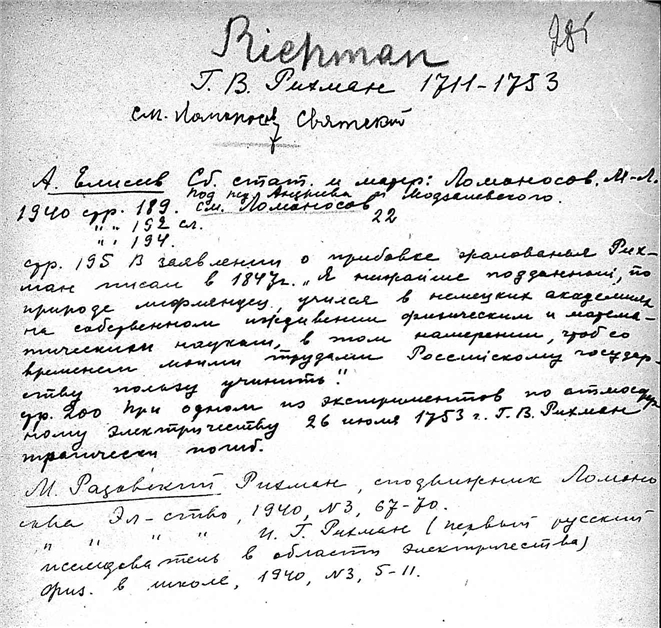 285
Richman
Г. В. Рихман 1711-1753
см. Ломоносов Святский
А. Елисеев Сб. стат. и матер: Ломоносов. М-Л.
под ред Андреева и Модзалевского.
1940 стр. 189. см. Ломоносов 22
" " 192 сл.
" " 194.
стр. 195 В заявлении о прибавке жалованья Рих-
ман писал в 1847г. „Я нижайше подданной, по
природе лифляндец, учился в немецких академиях
на собственном иждивении физическим и матема-
тическим наукам, в том намерении, чтоб со
временем моими трудами Российскому государ-
ству пользу учинить".
стр. 200 При одном из экспериментов по атмосфер
ному электричеству 26 июля 1753 г. Г. В. Рихман
трагически погиб.
М. Радовский Рихман, сподвижник Ломоно
сова Эл-ство, 1940, N3, 67-70.
" " " " И. Г. Рихман (первый русский
исследователь в области электричества)
Физ. в школе, 1940, N3, 5-11.